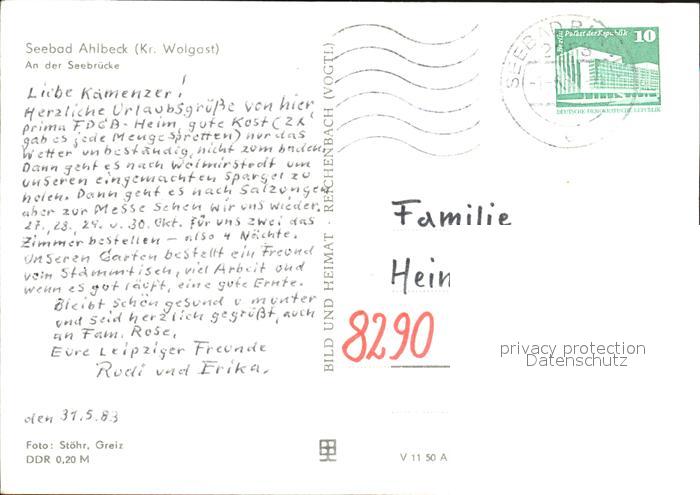 Seebad Ahlbeck (Kr. Wolgast)
An der Seebrücke
Liebe Kamenzer!
Herzliche Urlaubsgrüße von hier
prima FDGB-Heim, gute Kost (2x
gab es jede Menge Spretten) nur das
Wetter unbeständig, nicht zum baden.
Dann geht es nach Wolmirstedt um
unseren eingemachten Spargel zu
holen. Dann geht es nach Salzungen
aber zur Messe sehen wir uns wieder.
27., 28., 29. u. 30. Okt. für uns zwei das
Zimmer bestellen – also 4 Nächte.
Unseren Garten bestellt ein Freund
vom Stammtisch, viel Arbeit und
wenn es gut läuft, eine gute Ernte.
Bleibt schön gesund u munter
und seid herzlich gegrüßt, auch
an Fam. Rose.
Eure Leipziger Freunde
Rudi und Erika.
den 31.5.83
Foto: Stöhr, Greiz
DDR 0,20 M
BILD UND HEIMAT REICHENBACH (VOGTL)
V 11 50 A
SEEBAD
Berlin Palast der Republik 10
DEUTSCHE DEMOKRATISCHE REPUBLIK
Familie
Hein
8290
privacy protection
Datenschutz